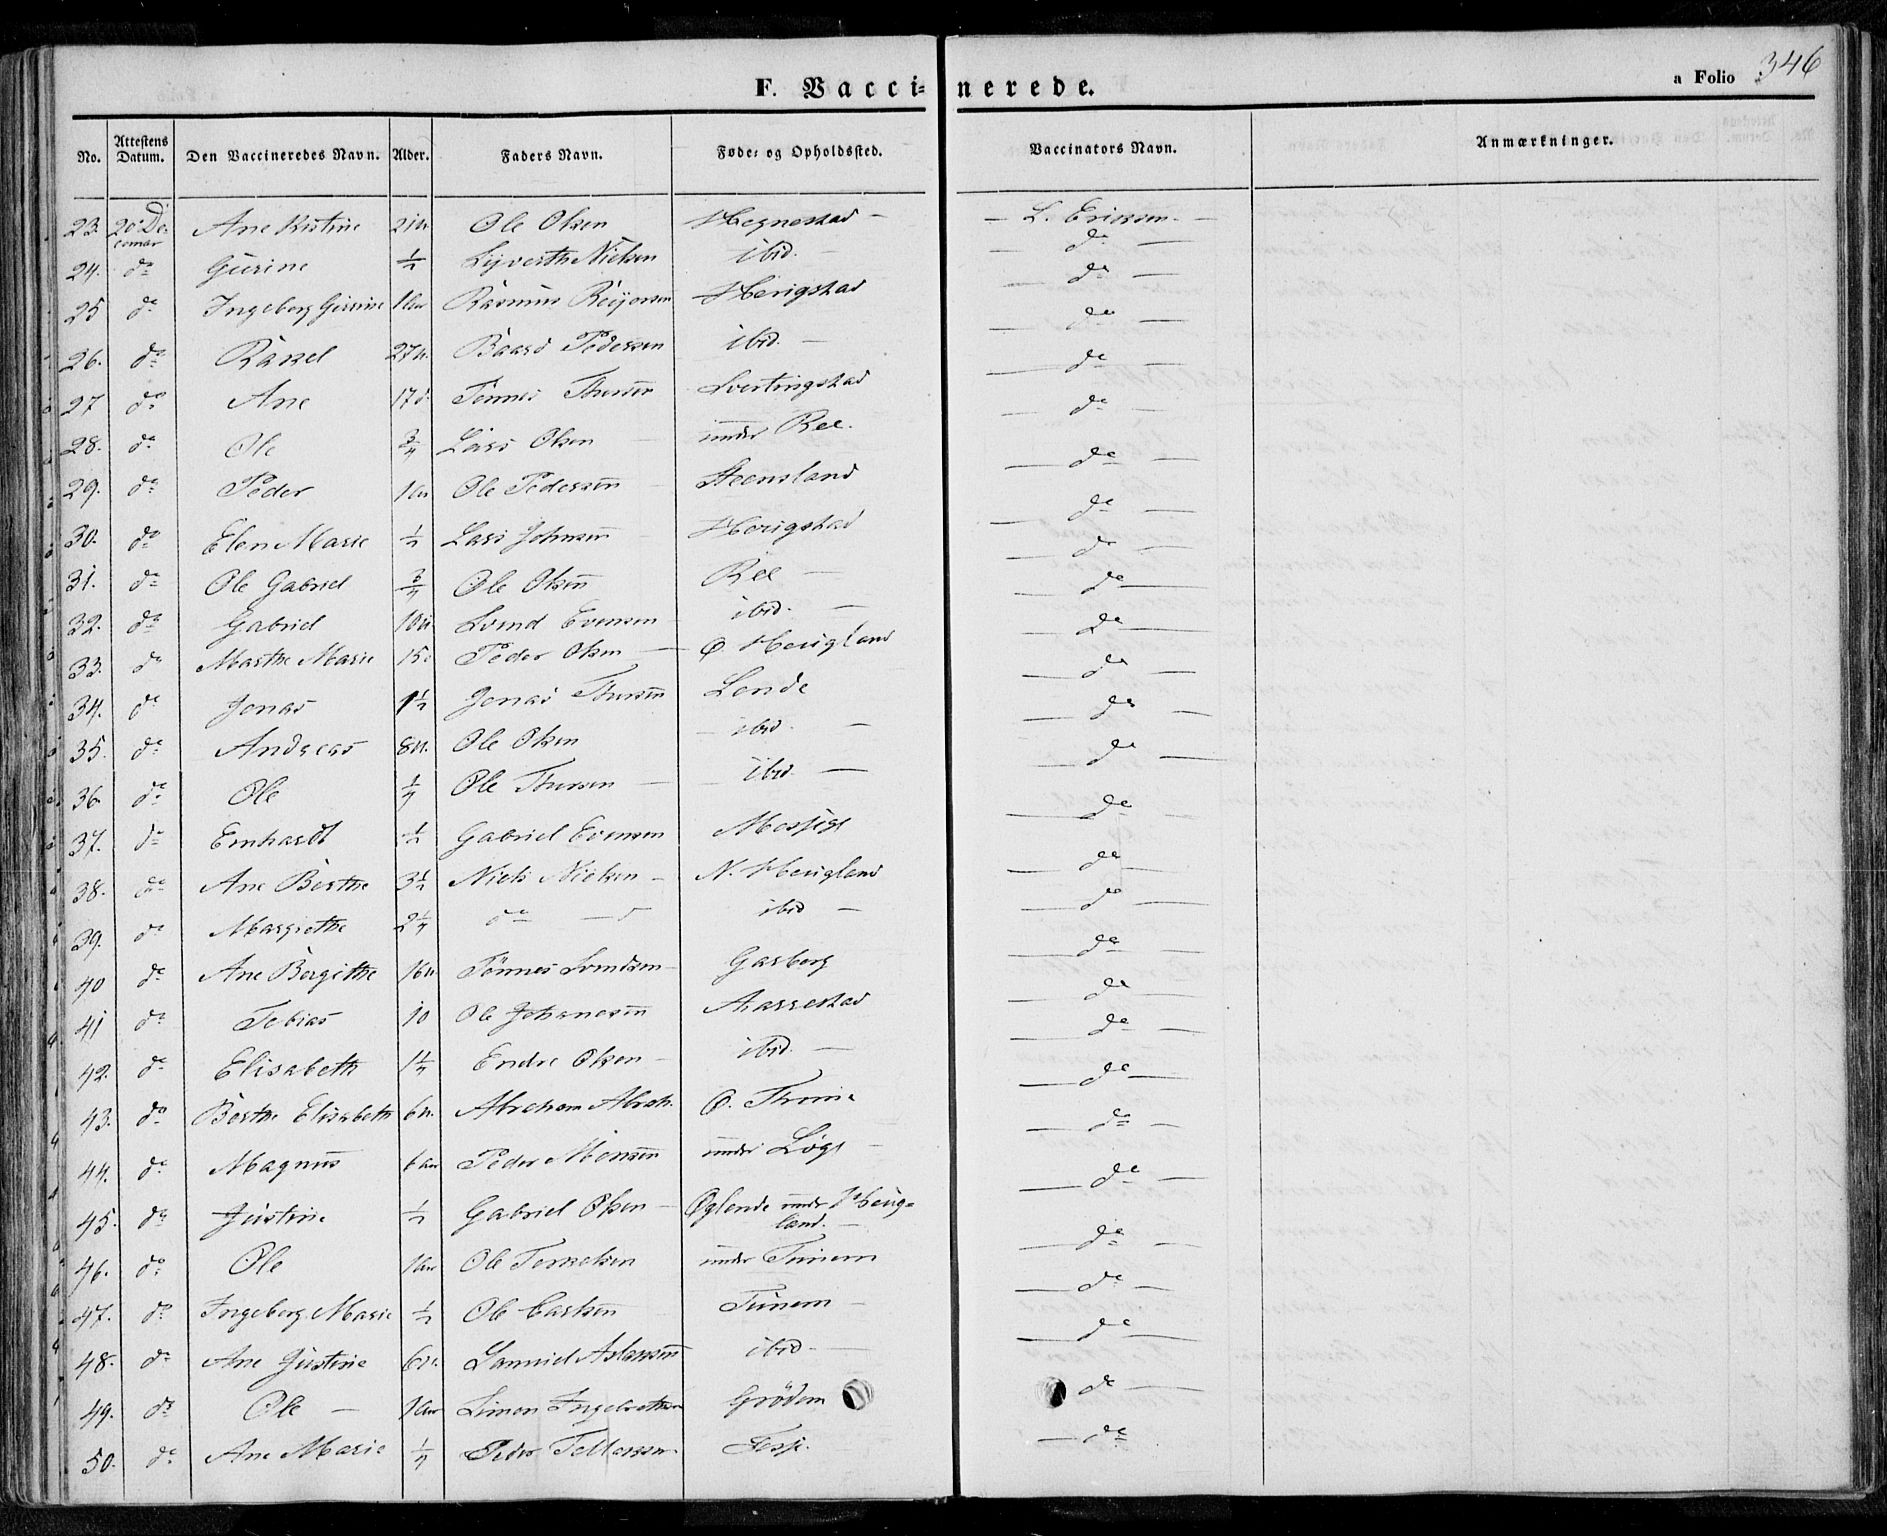 346
F. Vaccinerede.
a Folio
No. Attestens Datum. Den Vaccineredes Navn. Alder. Faders Navn. Føde- og Opholdssted. Vaccinators Navn. Anmærkninger.
23. 20 De- Ane Kistine Ole Olsen Hegnestad – L. Ericksen. –
cember
24. do Gurine ½ Nielsen ibid. – do –
25 do Ingeborg Gurine 1 Aar Rasmus Herigstad do –
26. do Rakel Baard Pedersen ibid. – do –
27 do Ane Tönnes Svertingstad do –
28. do Ole ¾ Lars Olsen – under Ree. do –
29. do Peder 1 Aar Ole Pederssen – Steensland do –
30. do Elen Marie ½ Lars Johnsen – Herigstad do –
31. do Ole Gabriel ¾ Ole Olsen Ree – do –
32. do Gabriel Svend Evensen ibid. – do –
33. do Marthe Marie Peder Olsen – Ø. Heigland do –
34. do Jonas 1½ Jonas Lende do –
35. do Andreas Ole Olsen – ibid. – do –
36. do Ole ¼ Ole – – ibid. – do –
37. do Emhardt ½ Gabriel Evensen Mossige do –
38. do Ane Berthe 3½ Niels Nielsen – N. Heigland do –
39. do Margrethe 2¼ do – ibid – do –
40 do Ane Bergithe Tönnes Svendsen – Garborg do –
41 do Tobias 10 Ole Johanesen Aarrestad do –
42. do Elisabeth 1¼ Endre Olsen – ibid. – do –
43. do Berthe Elisabeth Abraham Abrah. Ø. Thime do –
44. do Magnus 6 Aar Peder Monsen under Løge – do –
45. do Justine ½ Gabriel Olsen – Øglende under Heig- do –
land. –
46. do Ole 1 Aar Ole Torkelsen under Tunem do –
47. do Ingeborg Marie ½ Ole Carlsen Tunem – do –
48. do Ane Justine Samuel Aslaksen ibid – do –
49. do Ole – 1 Aar Simon Ingebrethsen Grödem do –
50. do Ane Marie ¼ Peder Tollefsen – do